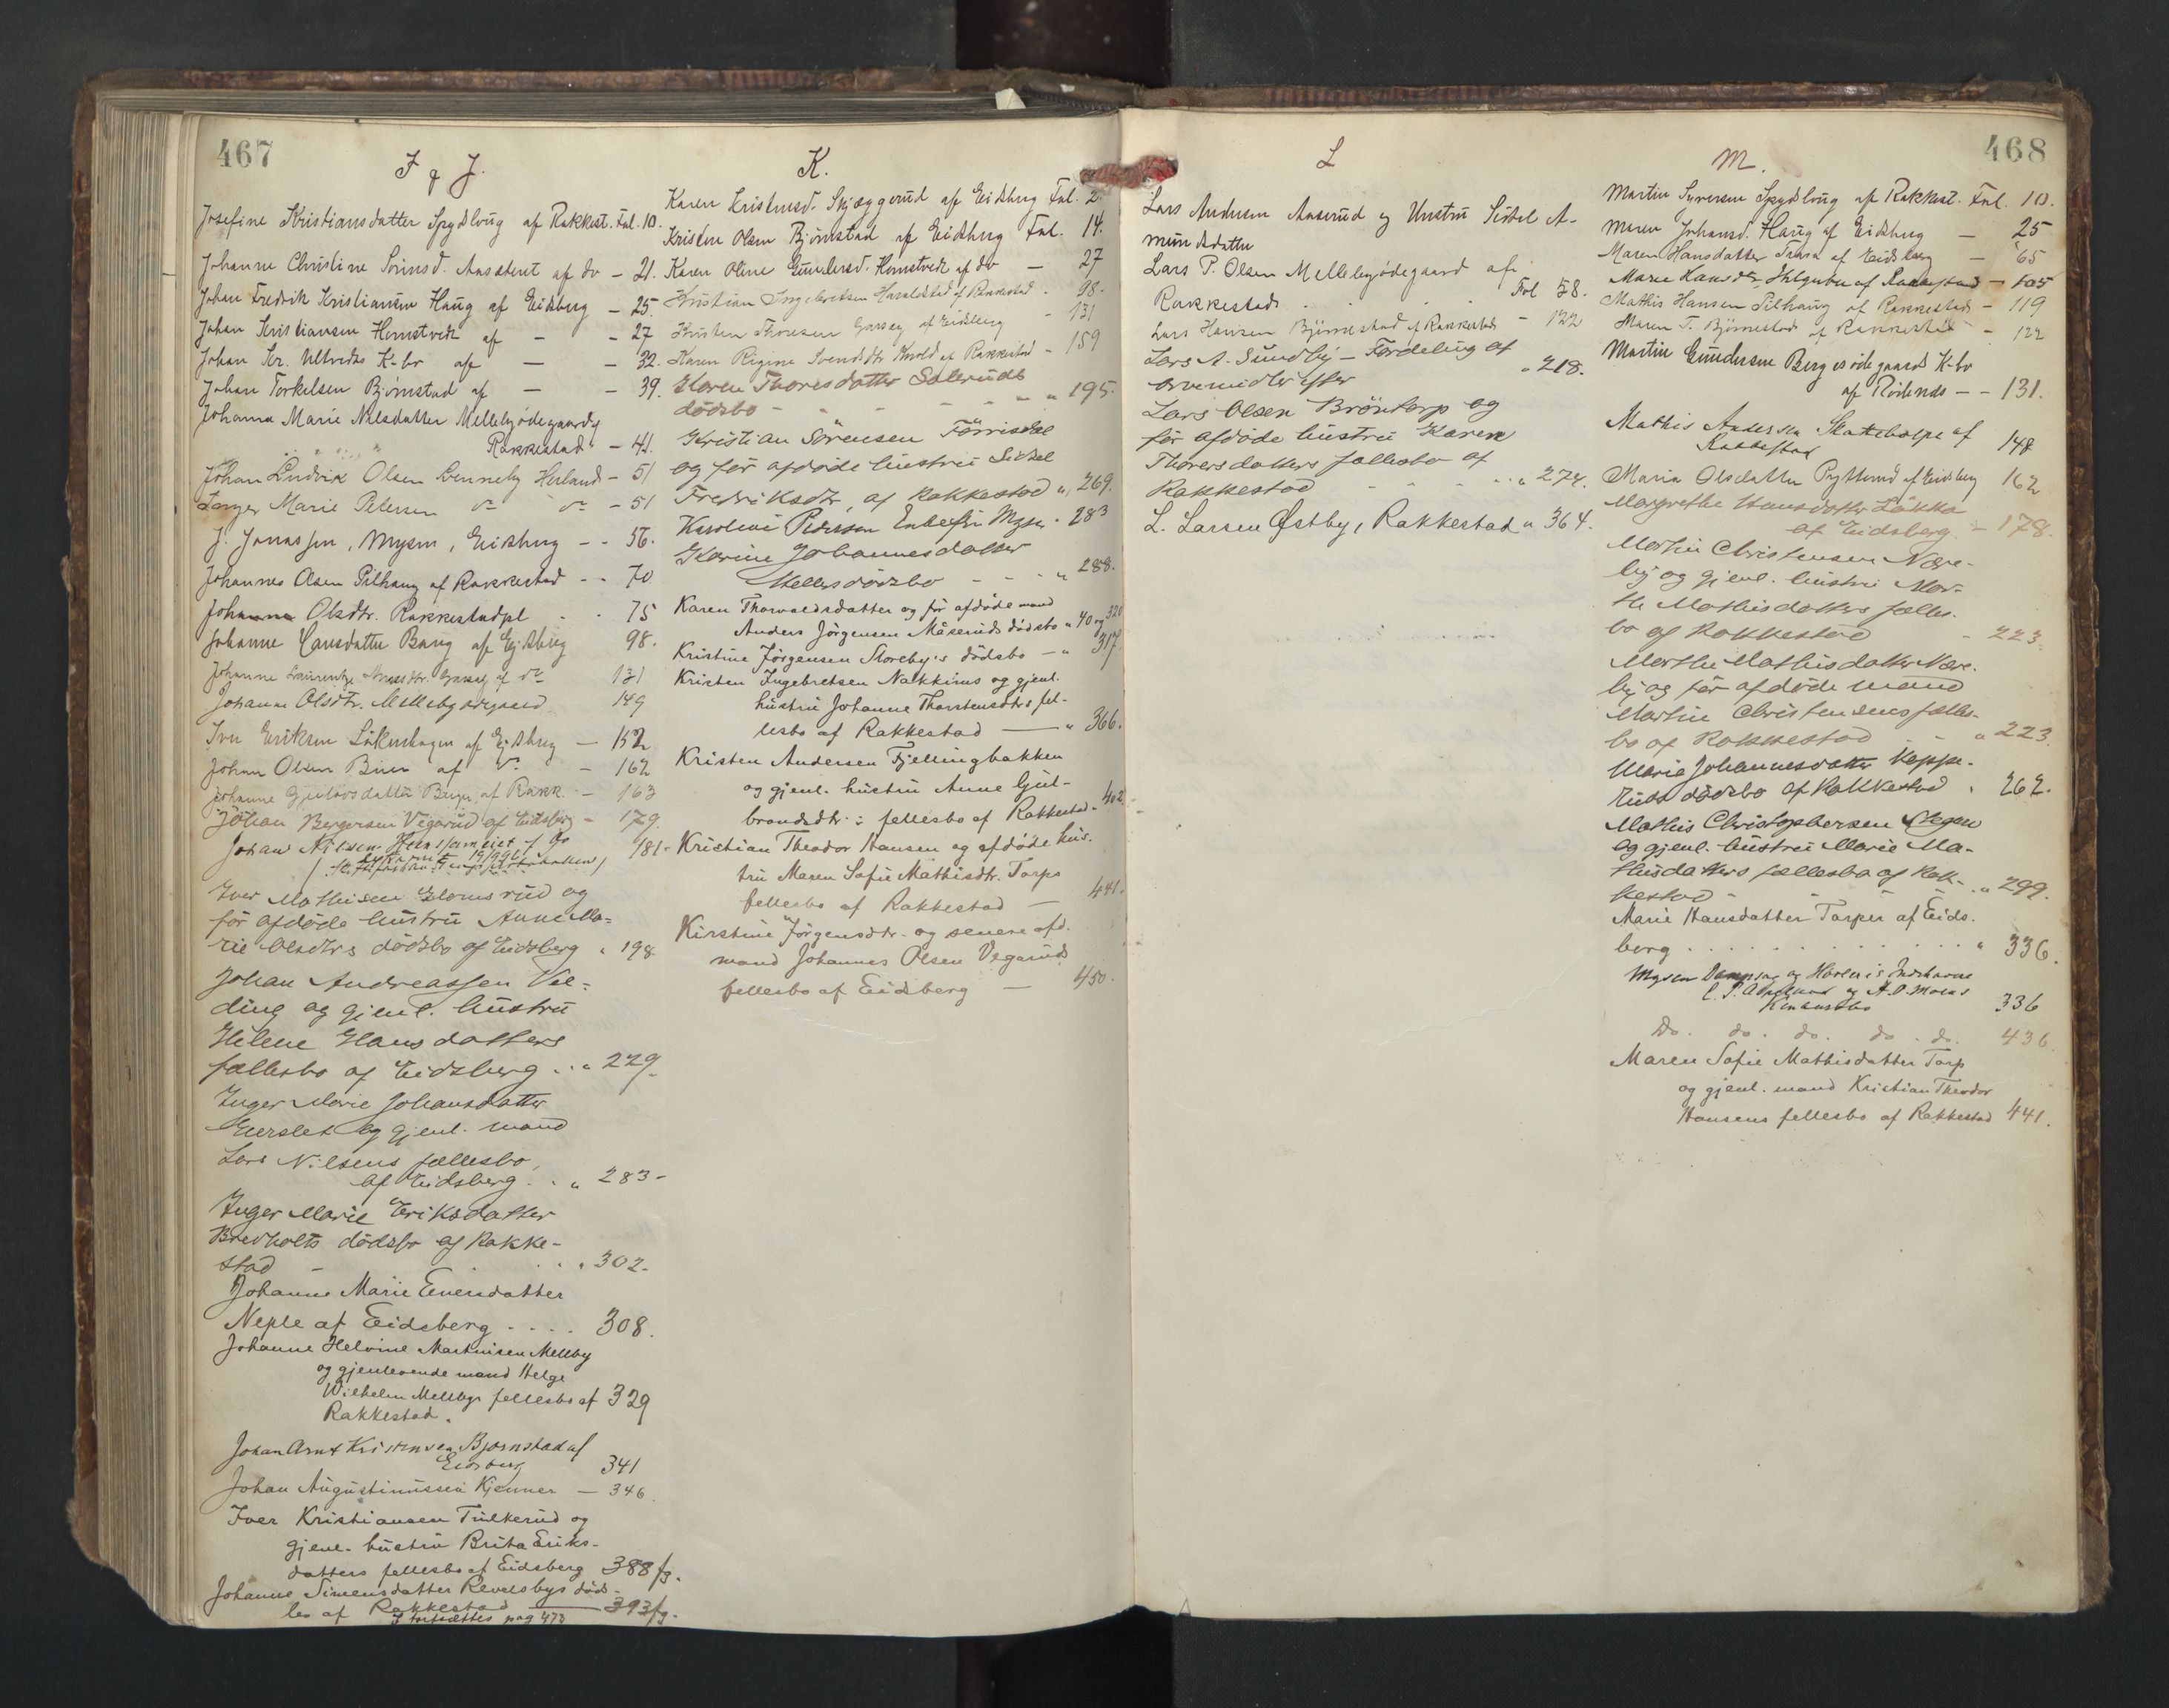 467
I & J.
Josefine Kristiansdatter Spydbøug af Rakkest. Fol. 10.
Johanne Christine Sørensd. af do - 21.
Johan Fredrik Kristiansen Haug af Eidsberg - 25.
Johan Kristiansen Homstvedt af - - 27
Johan Kr. Ultvedts K-bo af - - 32.
Johan Torkelsen Bjørnstad af - - 39.
Johanna Marie Nilsdatter Mellebyødegaard
Rakkestad - 41.
Johan Ludvik Olsen Herland - 51
Inger Marie Petersen do do - 51
J. Jonassen, Mysen, Eidsberg - - 56.
Johannes Olsen Pilhaug af Rakkestad - - 70
Johanna Olsdtr. Rakkestadpl - - 75
Johanne Larsdatter Baug af Ejdsberg 98.
Johanne Laurentze Garseg af do 131
Johanne Olsdtr. Mellebyødegaard 149
Iver Eriksen Likushagen af Ejdsberg - 152
Johan Olsen af do - 162
Johanne Gjertsdatter af Rakk. - 163
Johan Bergersen Vegarud af Eidsberg - 179.
Johan Nilsen af do 181-
Iver Mathisen Glomsrud og
før afdøde hustru Anne Ma-
rie Olsdtrs dødsbo af Eidsberg " 198
Johan Andreassen Vel-
ding og gjenl. hustru
Helene Hansdatters
fællesbo af Eidsberg . . " 229.
Inger Marie Johansdatter
og gjenl. mand
Lars Nilsens fællesbo,
af Eidsberg . . " 283-
Inger Marie Eriksdatter
Bredholts dødsbo af Rakke-
stad - . . . " 302.
Johanne Marie Evensdatter
Neple af Eidsberg . . . . 308.
Johanne Helvine Martinsen Melleby
og gjenlevende mand Helge
Wilhelm Mellbys fellesbo af 329
Rakkestad.
Johan Arnt Kristensen Bjørnstad af
Eidsberg 341
Johan Augustinussen Kjenner - 346.
Iver Kristiansen Tulkerud og
gjenl. hustru Brita Eriks-
datters fellesbo af Eidsberg 388 fg.
Johanne Simensdatter Revelsbys døds-
bo af Rakkestad 393 fg.
I fortsættes pag 473
K.
Karen Kristensd. Skjæggerud af Eidsberg Fol. 2.
Kristen Olsen Bjørnstad af Eidsberg Fol. 14.
Karen Oline Gundersd. Homstvedt af do - 27
Kristian Ingebretsen Haraldstad af Rakkestad - 98.
Kristen Thoresen Garseg af Eidsberg - 131
Karen Regine Svendsdtr. af Rakkestad - 159
Karen Thoresdatter Soleruds
dødsbo - - - - - " 195.
Kristian Sørensen Førrisdal
og før afdøde hustru Sidsel
Fredriksdtr, af Rakkestad " 269.
Karoline Pedersen Enkefru Mysen . 283
Karine Johannesdatter
Mellesdødsbo - - - " 288.
Karen Thorvaldsdatter og før afdøde mand
Anders Jørgensen Måseruds dødsbo " 40 og 320
Kristine Jørgensen Storeby's dødsbo - " 317.
Kristen Ingebretsen Nakkims og gjenl.
hustru Johanne Thorstensdtrs fel-
lesbo af Rakkestad - " 366.
Kristen Andersen Fjellingbakken
og gjenl. hustru Anne Gul-
brandsdtr.s fellesbo af Rakkestad - 402
Kristian Theodor Hansen og afdøde hus-
tru Maren Sofie Mathisdtr. Torps
fellesbo af Rakkestad - 441.
Kirstine Jørgensdtr. og senere afd.
mand Johannes Olsen Vegaruds
fellesbo af Eidsberg - 450.
L
Lars Andersen Aaserud og Hustru Sidsel A-
mundsdatter
Lars P. Olsen Mellebyødegaard af
Rakkestad . . . . Fol 58.
Lars Hansen Bjørnestad af Rakkestad - 122
Lars A. Sundby - Fordeling af
arvemidler efter " 218.
Lars Olsen Brøntorp og
før afdøde hustru Karen
Thoresdatters fællesbo af
Rakkestad - - - - . . " 274.
L. Larsen Østby, Rakkestad " 364.
M.
468
Martin Syversen Spydbøug af Rakkest. Fol. 10.
Maren Johansd. Haug af Eidsberg - 25
Maren Hansdatter af Eidsberg - 65
Maren Hansdtr. af Rakkestad - 105
Mathis Hansen Pilhaug af Rakkestad - 119
Maren T. Bjørnestad af Rakkestad - 122
Martin Gundersen Bergsødegaards K-bo
af Rødenes - - 131.
Mathis Andersen af
Rakkestad 148
Maria Olsdatter af Eidsberg 162
Margrethe Hansdatter Løkka
af Eidsberg - 178.
Martin Christensen Nære-
by og gjenl. hustru Mar-
the Mathisdatters fælles-
bo af Rakkestad - 223.
Marthe Mathisdatter Nære-
by og før afdøde mand
Martin Christensens fælles-
bo af Rakkestad - - " 223.
Maria Johannesdatter Keppe-
ruds dødsbo af Rakkestad . 262.
Mathis Christophersen Skogen
og gjenl. hustru Marie Ma-
thisdatters fællesbo af Rak-
kestad - - - . . " 299.
Marie Hansdatter Torper af Eids-
berg . . . . . . . . " 336.
Mysen Dampsag og Høvleris Indehavere
og A. O. Moens
Konkursbo 336
Do. do. do. do. do. 436.
Maren Sofie Mathisdatter Torp
og gjenl. mand Kristian Theodor
Hansens fellesbo af Rakkestad 441.